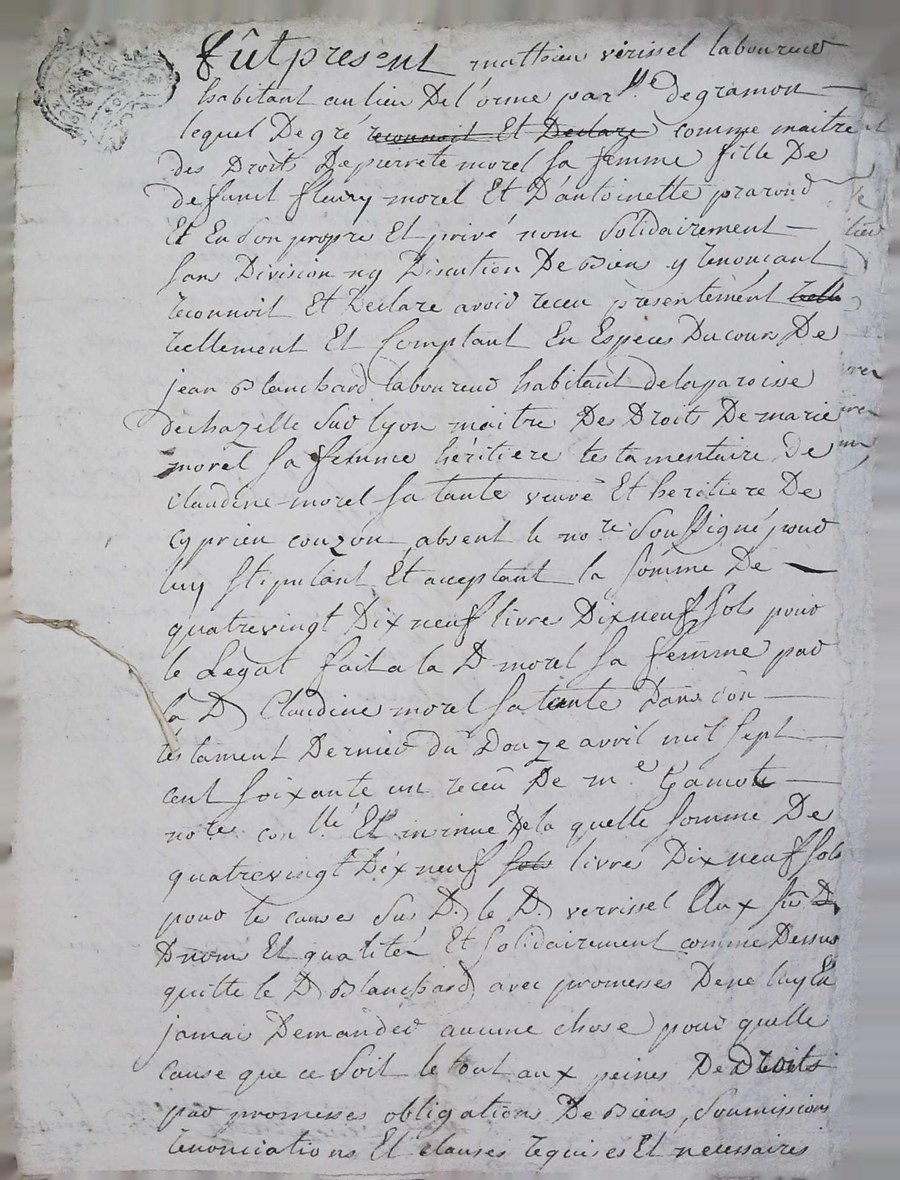 fût present mathieu verissel laboureur
habitant au lieu De l'orme par.sse de gramon
lequel De gré reconnoit Et Declare comme maitre
des Droits De pierrete morel sa femme fille De
defunt fleury morel Et D'antoinette prarond
Et En son propre Et privé nom solidairement
sans Division ny Discution De Biens y renoncant
reconnoit Et Declare avoir receu presentement reelle
reellement Et Comptant En Especes Du cours De
jean Blanchard laboureur habitant de la paroisse
de chazelle sur lyon maitre Des Droits De marie
morel sa femme héritiere testamentaire De
claudine morel sa tante veuve Et heritiere De
cyprien couzon absent le no.re soussigné pour
luy stipulant Et acceptant la somme De
quatrevingt Dix neuf livres Dix neuf sols pour
le Legat fait a la D. morel sa femme par
la D. Claudine morel sa tante Dans son
testament Dernier du Douze avril mil sept
cent soixante un receu De m.e Gamot
no.re Et De la quelle somme De
quatrevingt Dix neuf sols livres Dix neuf sols
pour les causes sus D. le D. verrissel Aux
D noms Et qualités Et solidairement comme Dessus
quitte le D. Blanchard avec promesses De ne luy En
jamais Demander aucune chose pour quelle
cause que ce soit le tout aux peines De Droits
par promesses obligations De Biens, soumissions
renonciations Et clauses requises Et necessaires